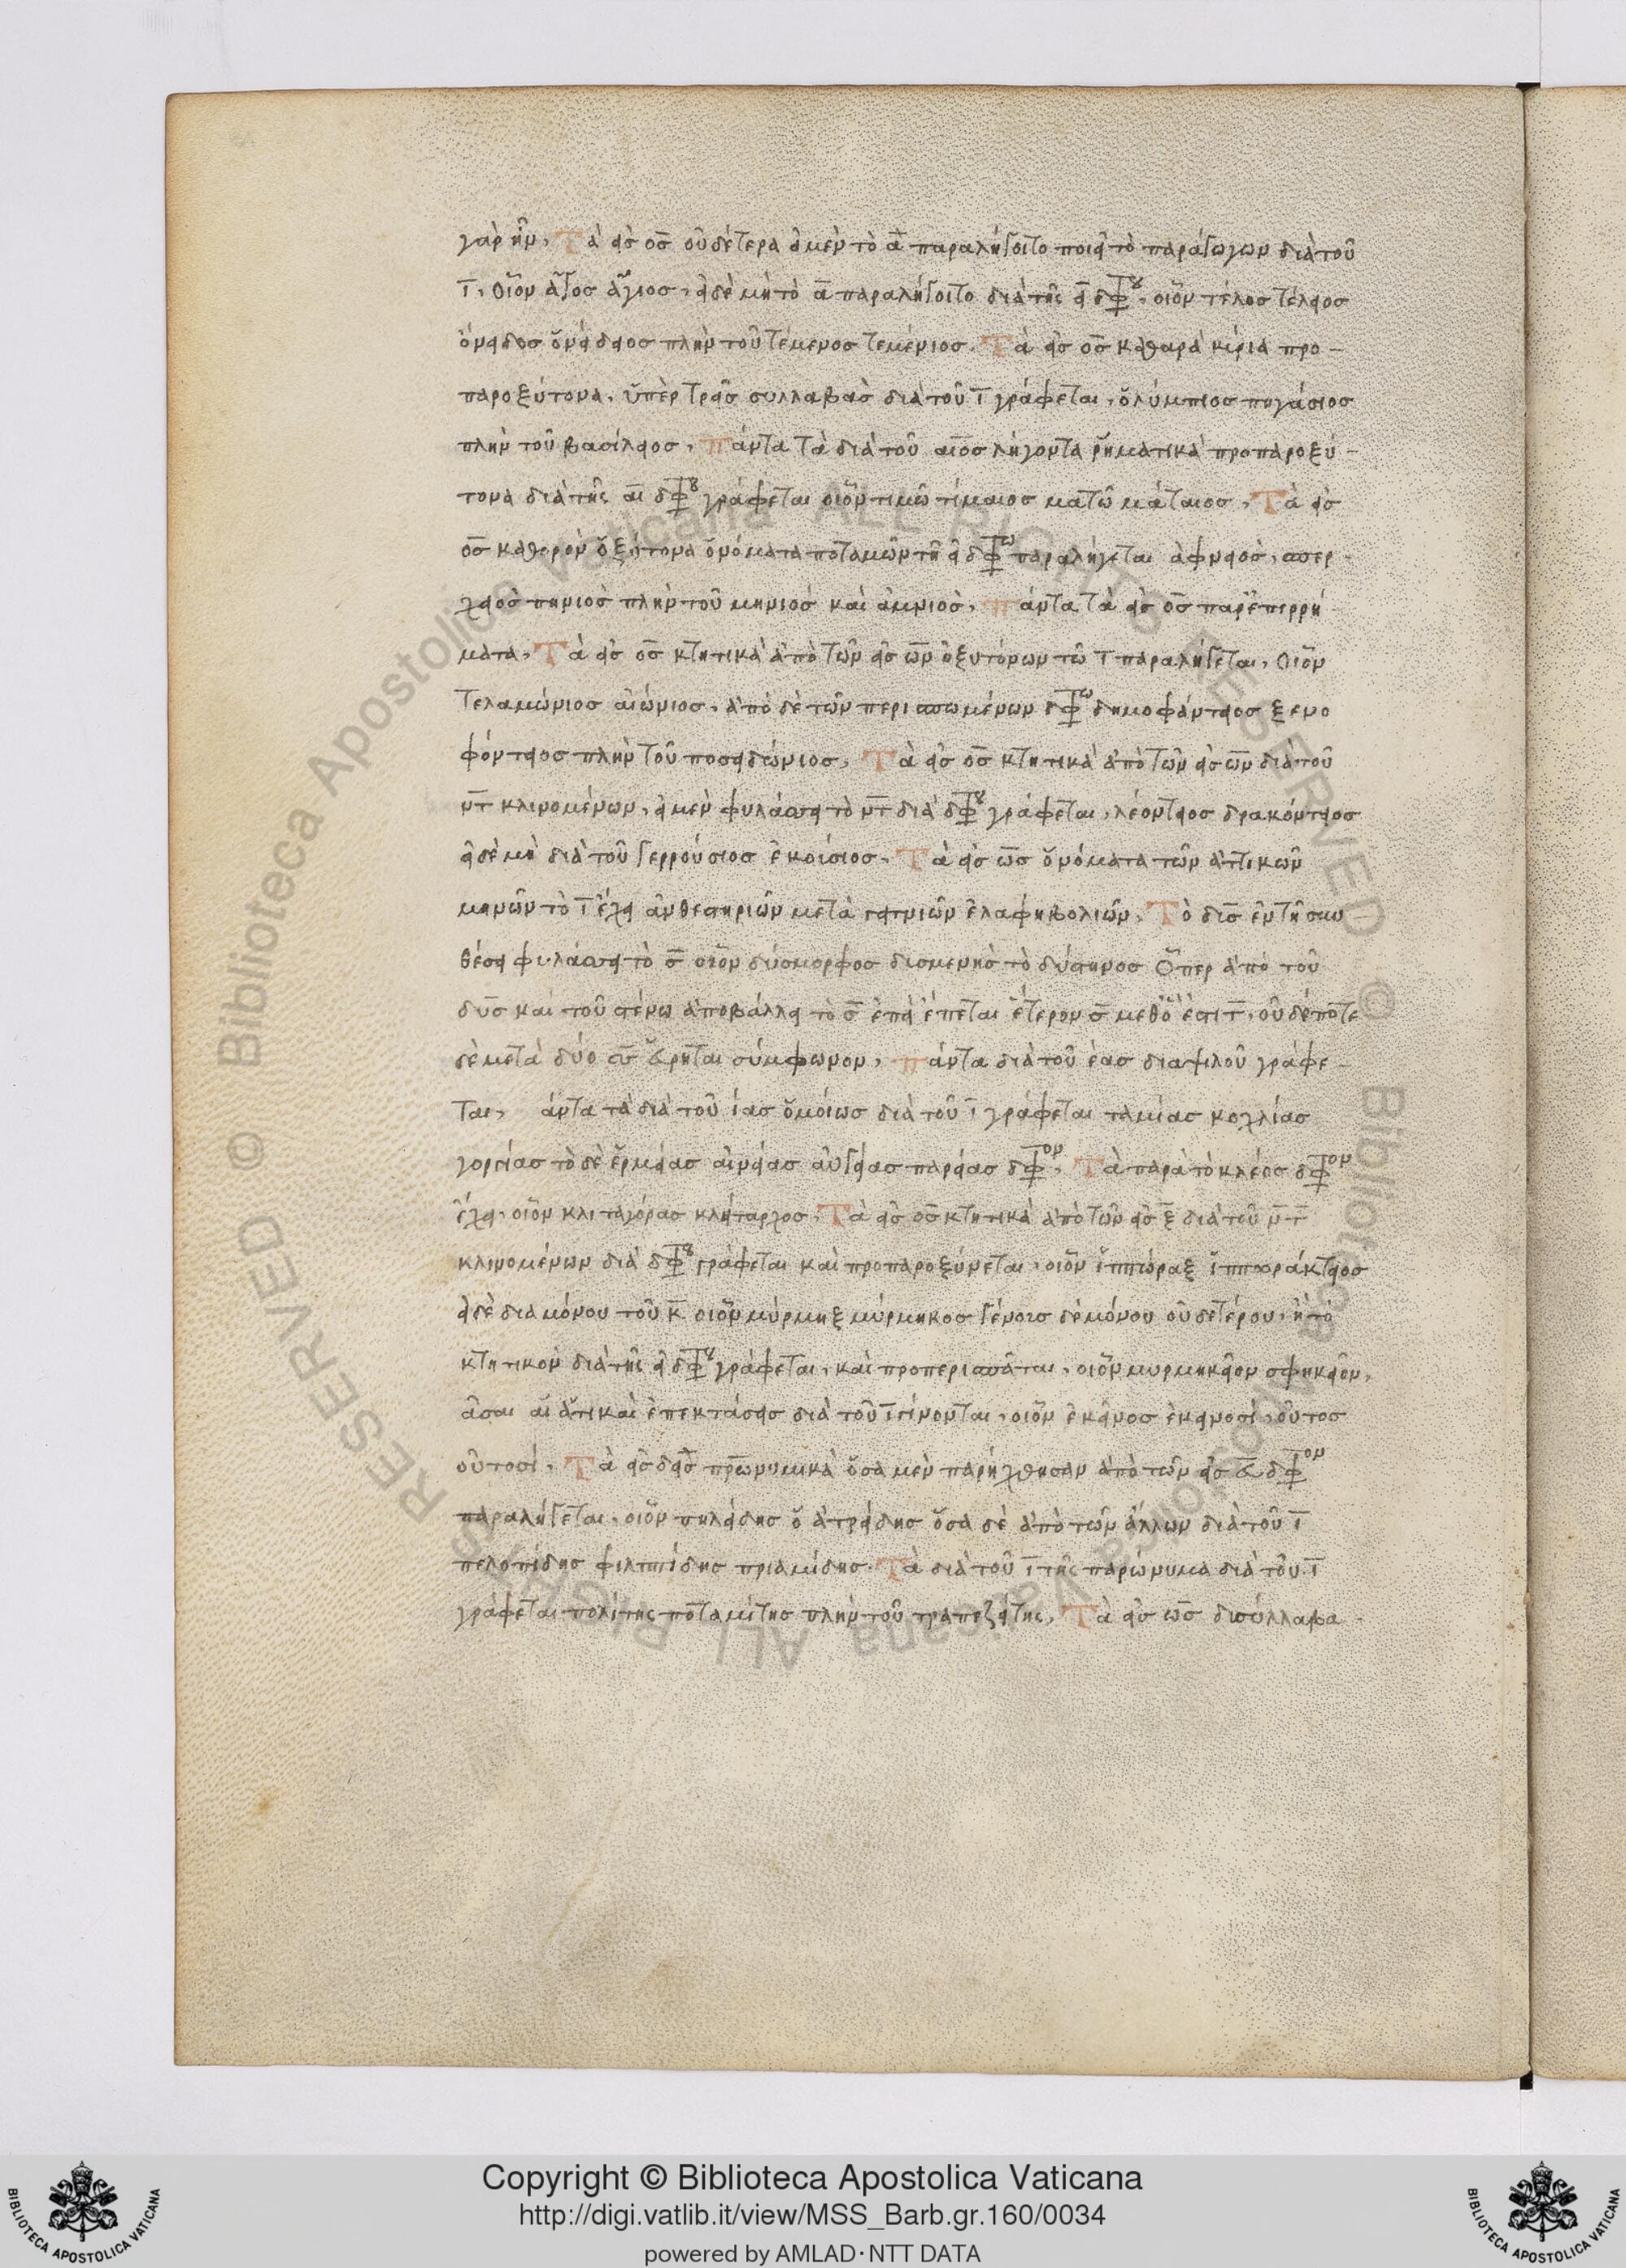 γὰρ ἦν, Τὰ εἰς ος οὐδέτερα εἰ μὲν τὸ α παραλήγοιτο ποιεῖ τὸ παράγωγων διὰ τοῦ
ι, οἷον ἄγος ἅγιος, εἰ δὲ μὴ τὸ α παραλήγοιτο διὰ τῆς ει διφ, οἷον τέλος τέλειος
ὄνειδος ὀνείδειος πλὴν τοῦ τέμενος τεμένιος. Τὰ εἰς ος καθαρὰ κύρια προ-
παροξύτονα, ὑπὲρ τρεῖς συλλαβὰς διὰ τοῦ ι γράφεται, ὀλύμπιος πηγάσιος
πλὴν τοῦ βασίλειος, Πάντα τὰ διὰ τοῦ αιος λήγοντα ῥηματικὰ προπαροξύ-
τονα διὰ τῆς αι διφ γράφεται οἷον τιμῶ τίμαιος ματῶ μάταιος, Τὰ εἰς
ος καθαρὸν ὀξύτονα ὀνόματα ποταμῶν τῆ ει διφ παραλήγεται ἀφνειὸς, σπερ-
χειὸς πηνιὸς πλὴν τοῦ μηνιὸς καὶ ἀμνιὸς, Πάντα τὰ εἰς ος παρ' ἐπιρρή
ματα, Τὰ εἰς ος κτητικὰ ἀπὸ τῶν εἰς ων ὀξυτόνων τῶ ι παραλήγεται, οἷον
Τελαμώνιος αἰώνιος, ἀπὸ δὲ τῶν περισπωμένων διφ δημοφάντειος ξενο
φόντειος πλὴν τοῦ ποσειδώνιος, Τὰ εἰς ος κτητικὰ ἀπὸ τῶν εἰς ων διὰ τοῦ
ντ κλινομένων, εἰ μὲν φυλάσσει τὸ ντ διὰ διφ γράφεται, λεόντειος δρακόντειος
εἰ δὲ μὴ διὰ τοῦ ι γερρούσιος ἑκούσιος, Τὰ εἰς ως ὀνόματα τῶν ἀττικῶν
μηνῶν τὸ ι ἔχει ἀνθεστηριῶν μεταγειτνιῶν ἐλαφηβολιῶν, Τὸ δις ἐν τῆ συν
θέσει φυλάσσει τὸ ς οἷον δύσμορφος δισμενὴς τὸ δύστηνος ὅπερ ἀπὸ τοῦ
δυς καὶ τοῦ στένω ἀποβάλλει τὸ ς ἐπεὶ ἕπεται ἕτερον ς μεθ' ὅ ἐστι τ, οὐδέποτε
δὲ μετὰ δύο σς εὕρηται σύμφωνον, Πάντα διὰ τοῦ έας δια ψιλοῦ γράφε-
ται, άντα τὰ διὰ τοῦ ίας ὁμοίως διὰ τοῦ ι γράφεται ταμίας κοχλίας
γοργίας τὸ δὲ ἑρμείας αἰνείας αὐγείας παρείας διφ, Τὰ παρὰ τὸ κλέος διφ
ἔχει, οἷον κλιταγόρας κλήταρχος, Τὰ εἰς ος κτητικὰ ἀπὸ τῶν εἰς ξ διὰ τοῦ ντ
κλινομένων διὰ διφ γράφεται καὶ προπαροξύνεται, οἷον
εἰ δὲ δια μόνου τοῦ κ οἷον μύρμηξ μύρμηκος γένους δὲ μόνου οὐδετέρου, ἢ τὸ
κτητικὸν διὰ τῆς ει διφ γράφεται, καὶ προπερισπᾶται, οἷον μυρμηκεῖον σφηκεῖον,
ᾶσαι αἱ ἀττικαὶ ἐπεκτάσεις διὰ τοῦ ι γίνονται, οἷον ἐκεῖνος ἐκεινοσί, οὗτος
οὑτοσί, Τὰ εἰς δεις πρωνυμικὰ ὅσα μὲν παρήχθησαν ἀπὸ τῶν εἰς ευς διφ
παραλήγεται, οἷον πηλείδης ὁ ἀτρείδης ὅσα δὲ ἀπὸ τῶν ἄλλων διὰ τοῦ ι
πελοπίδης φιλιππίδης πριαμίδης. Τὰ διὰ τοῦ ιτης παρώνυμα διὰ τοῦ ι
γράφεται πολίτης ποταμίτης πλὴν τοῦ τραπεζείτης, Τὰ εἰς ως δισύλλαβα
Copyright © Biblioteca Apostolica Vaticana
http://digi.vatlib.it/view/MSS_Barb.gr.160/0034
powered by AMLAD·NTT DATA